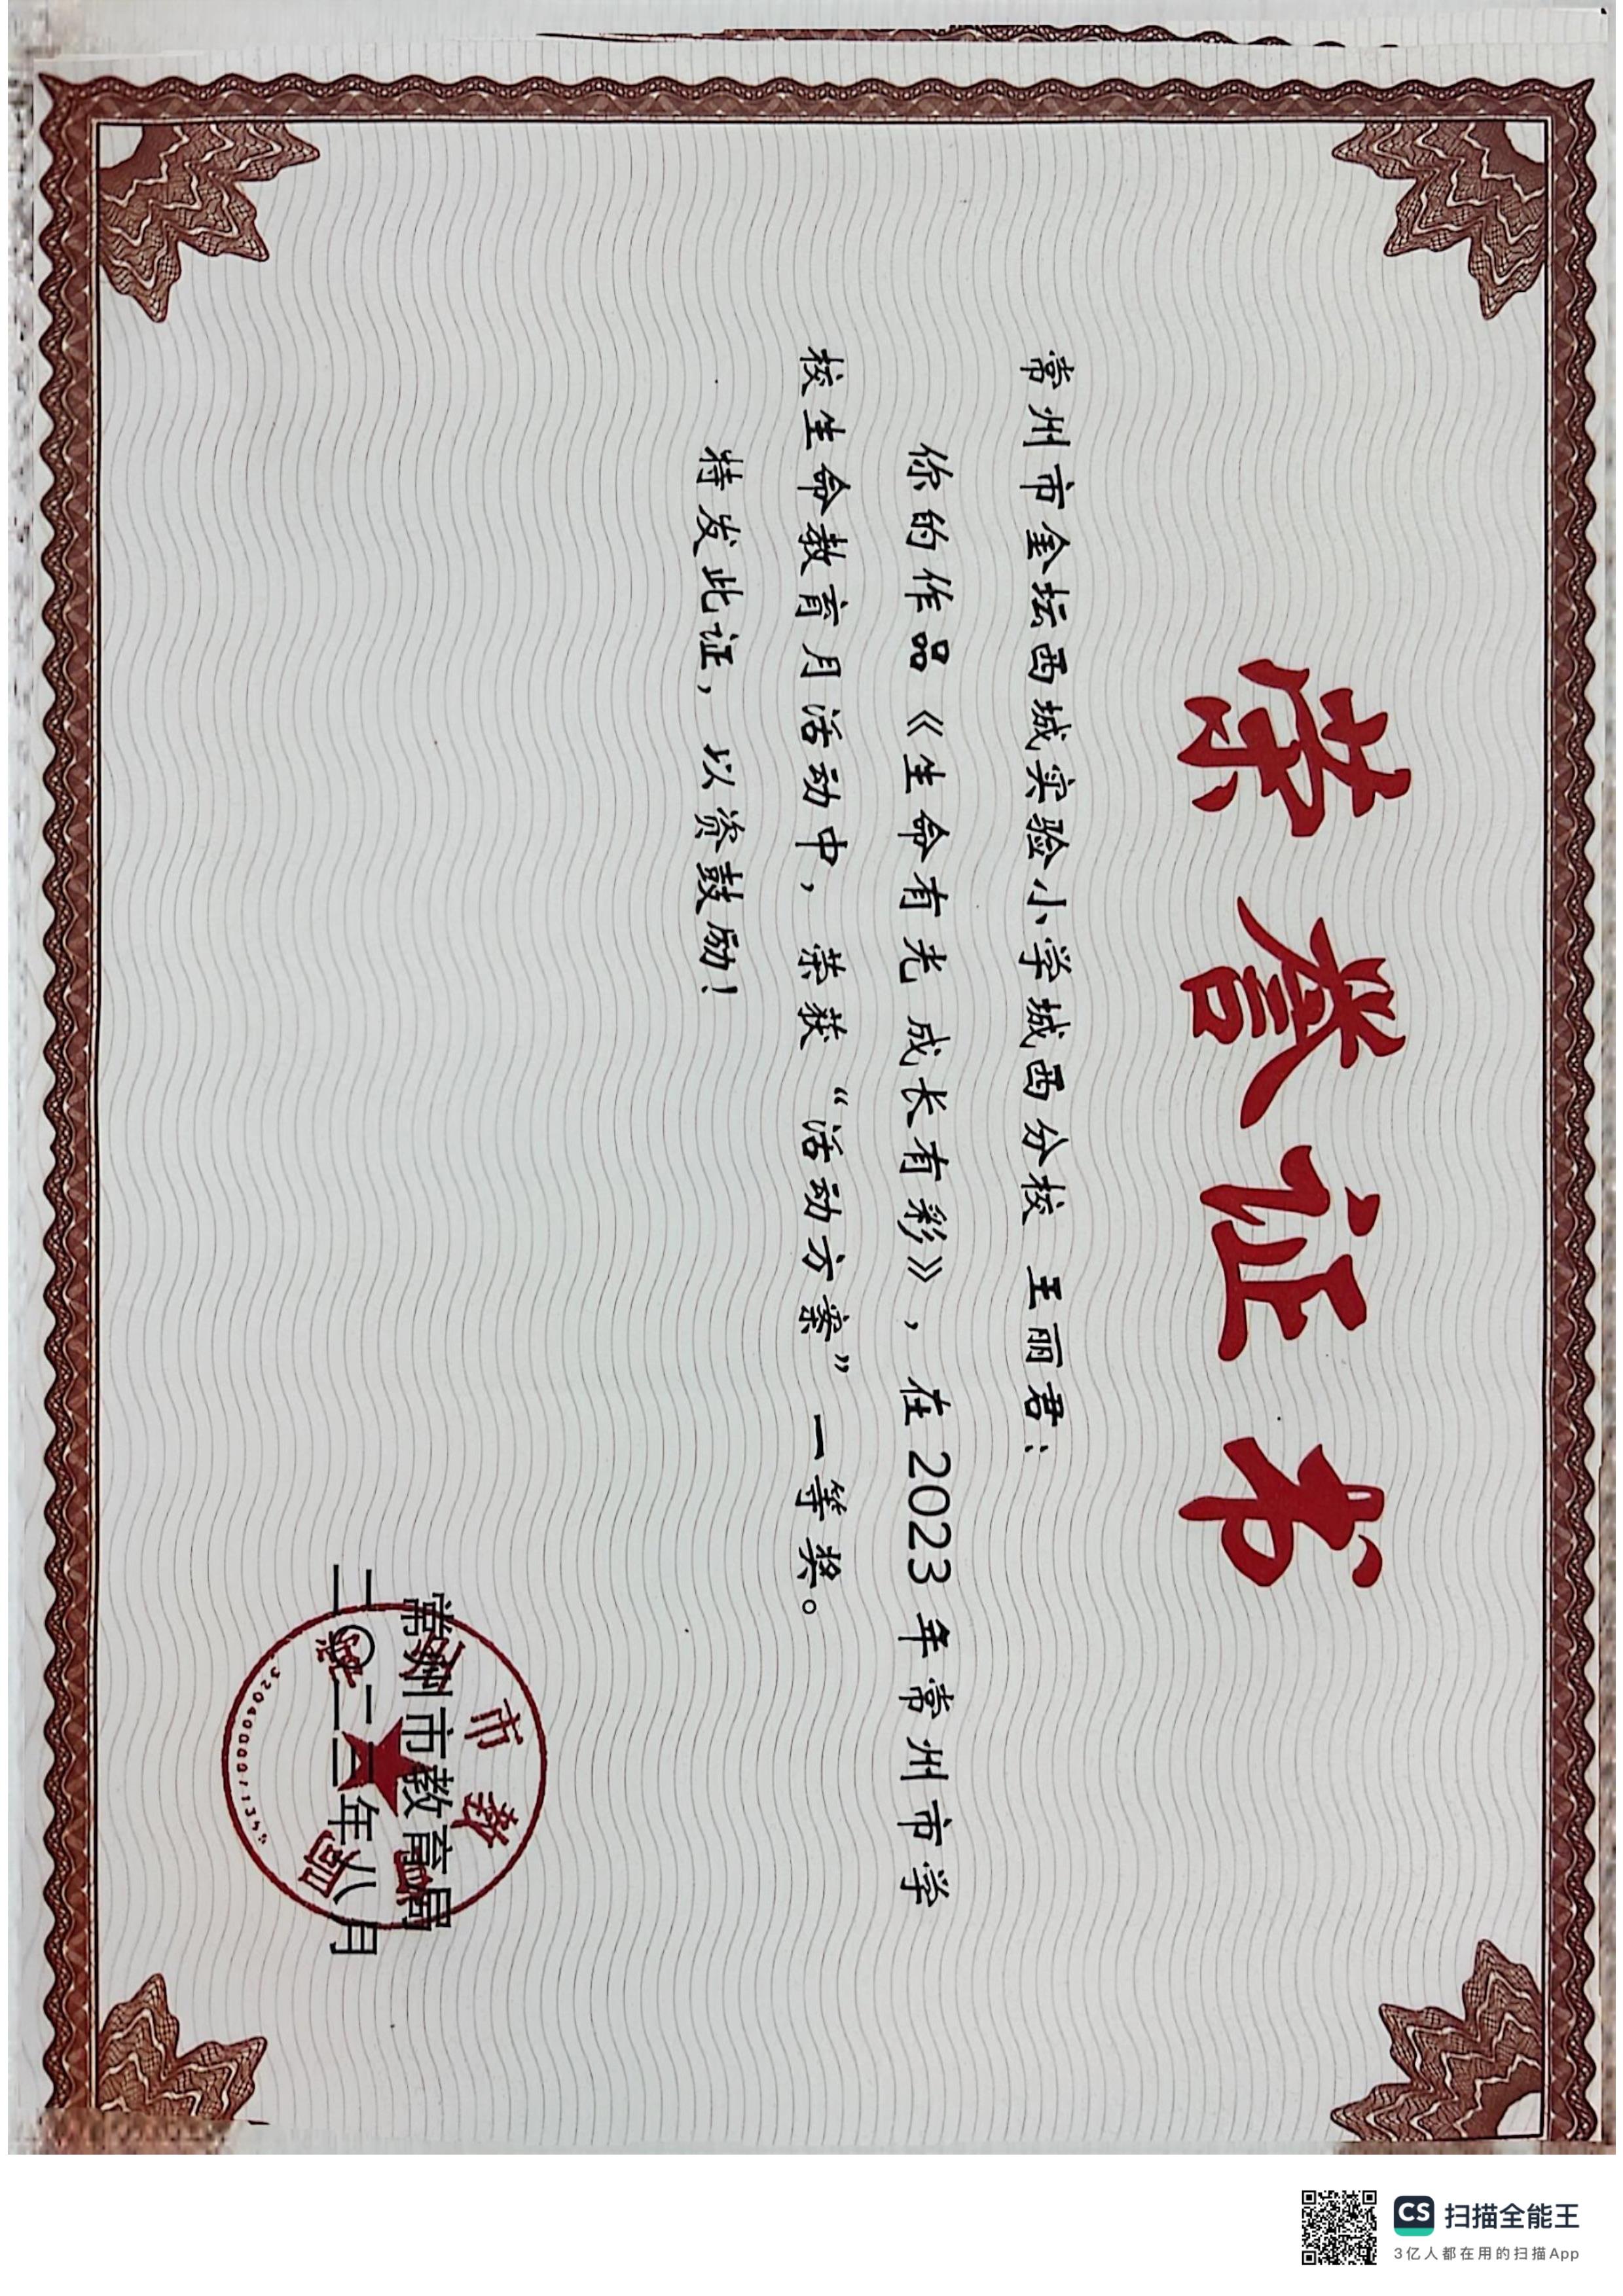 荣誉证书
常州市金坛西城实验小学城西分校 王丽君：
你的作品《生命有光 成长有彩》，在2023年常州市学
校生命教育月活动中，荣获“活动方案”一等奖。
特发此证，以资鼓励！
常州市教育局
二〇二三年八月
常州市教育局
CS 扫描全能王
3亿人都在用的扫描App